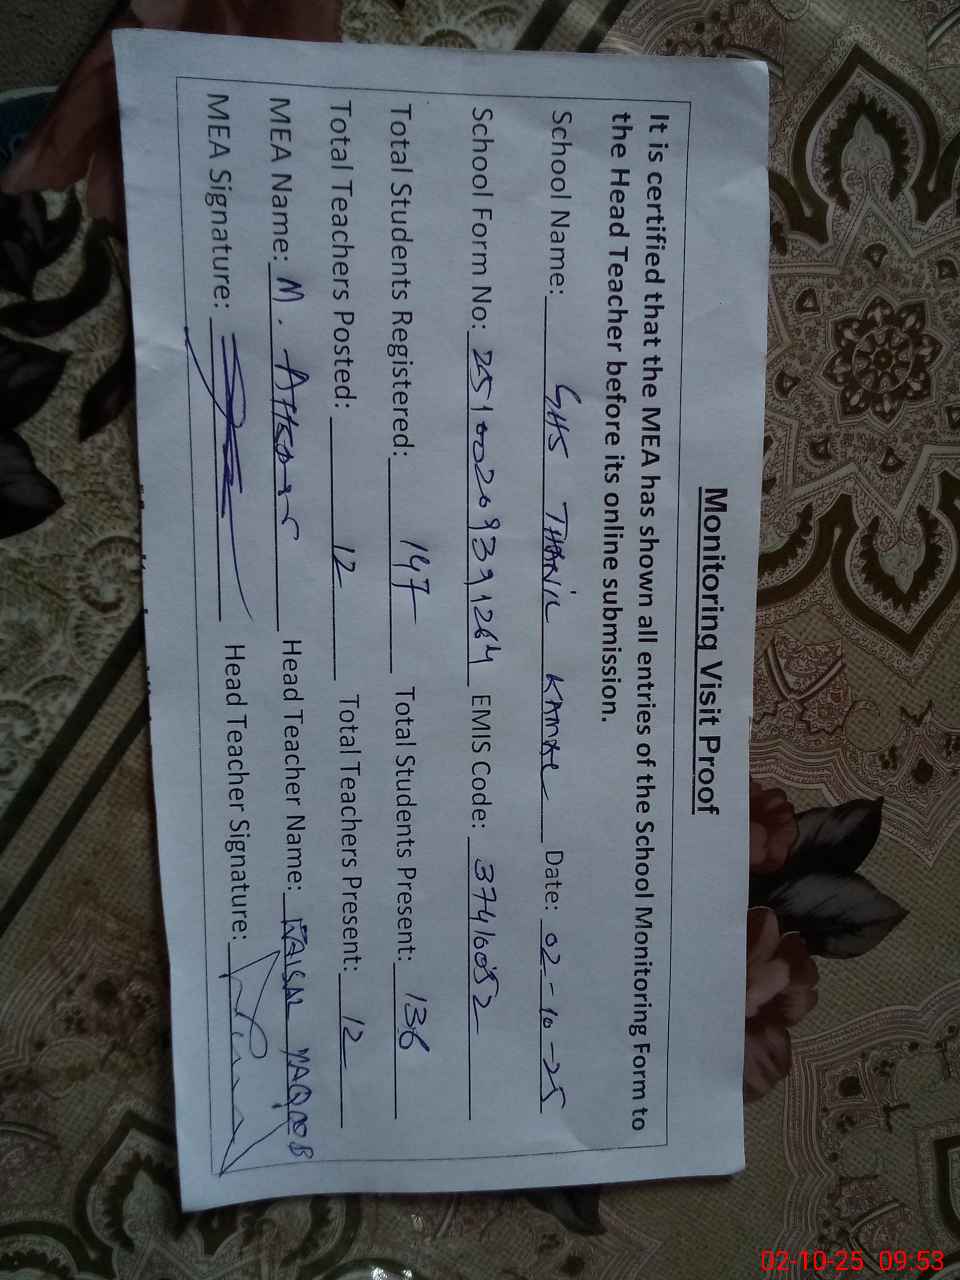 Monitoring Visit Proof
It is certified that the MEA has shown all entries of the School Monitoring Form to
the Head Teacher before its online submission.
School Name: GHS Date: 02-10-25
School Form No: 25100209391264 EMIS Code: 37416052
Total Students Registered: 147 Total Students Present: 136
Total Teachers Posted: 12 Total Teachers Present: 12
MEA Name: M. Head Teacher Name: YAQOOB
MEA Signature: Head Teacher Signature:
02-10-25 09:53